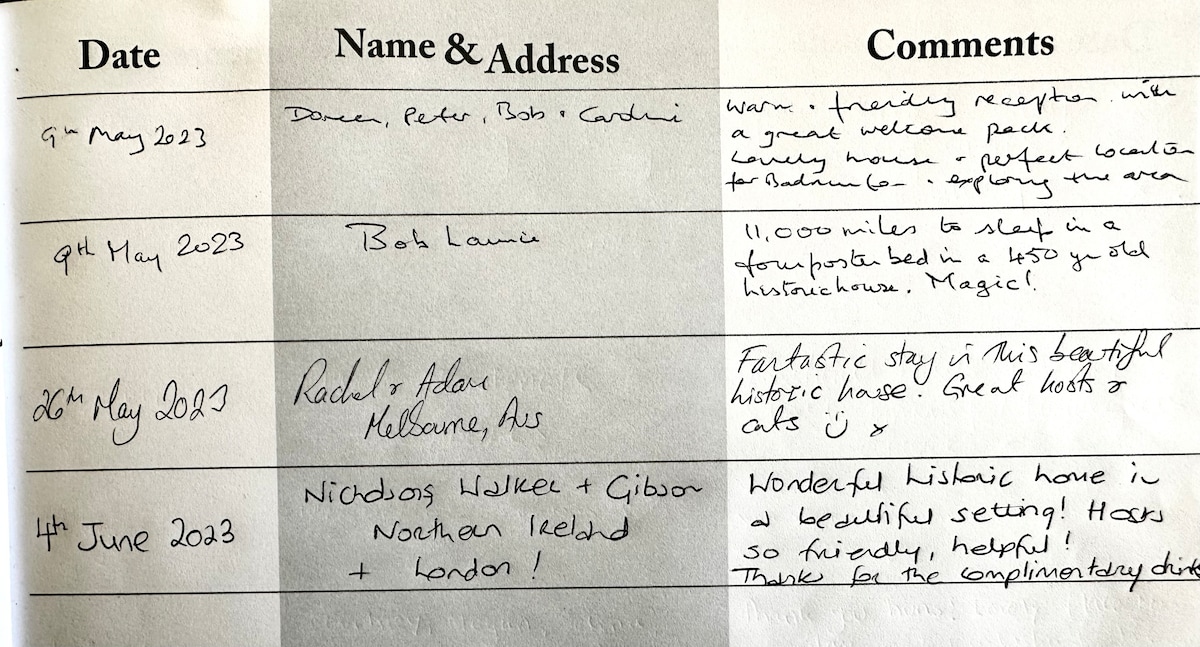 Date Name & Address Comments
9th May 2023
Doreen, Peter, Bob +
warm + freindly reception with
a great welcome pack.
Lovely house + perfect location
for Badminton + exploring the area
9th May 2023
Bob Lawrie
11,000 miles to sleep in a
four poster bed in a 450 yr old
historic house. Magic!
26th May 2023
Rachel & Adam
Melbourne, Aus
Fantastic stay in this beautiful
historic house. Great hosts &
cats ☺ x
4th June 2023
Nicholsons Walker + Gibson
Northern Ireland
+ London!
Wonderful historic home in
a beautiful setting! Hosts
so friendly, helpful!
Thanks for the complimentary drinks